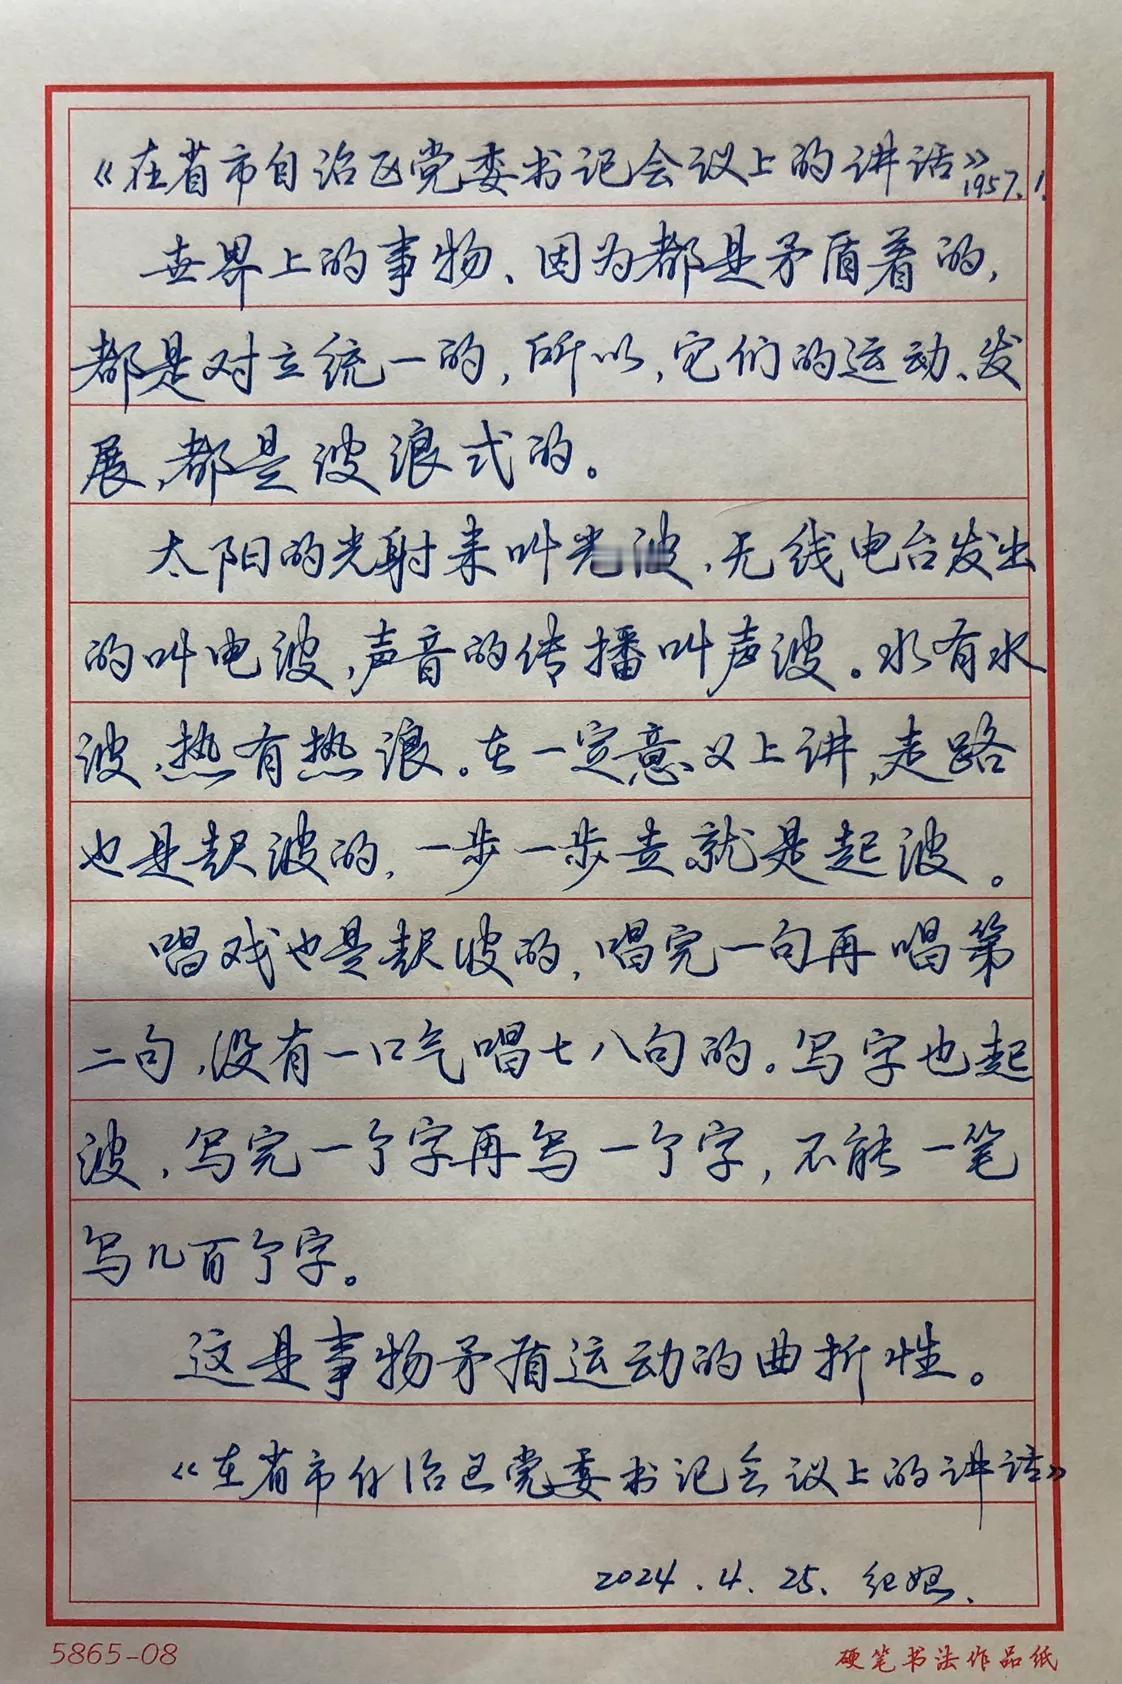 《在省市自治区党委书记会议上的讲话》1957.1
世界上的事物、因为都是矛盾着的,
都是对立统一的,所以,它们的运动、发
展,都是波浪式的。
太阳的光射来叫光波,无线电台发出
的叫电波,声音的传播叫声波。水有水
波,热有热浪。在一定意义上讲,走路
也是起波的,一步一步走就是起波。
唱戏也是起波的,唱完一句再唱第
二句,没有一口气唱七八句的。写字也起
波,写完一个字再写一个字,不能一笔
写几百个字。
这是事物矛盾运动的曲折性。
《在省市自治区党委书记会议上的讲话》
2024.4.25.
5865-08
硬笔书法作品纸